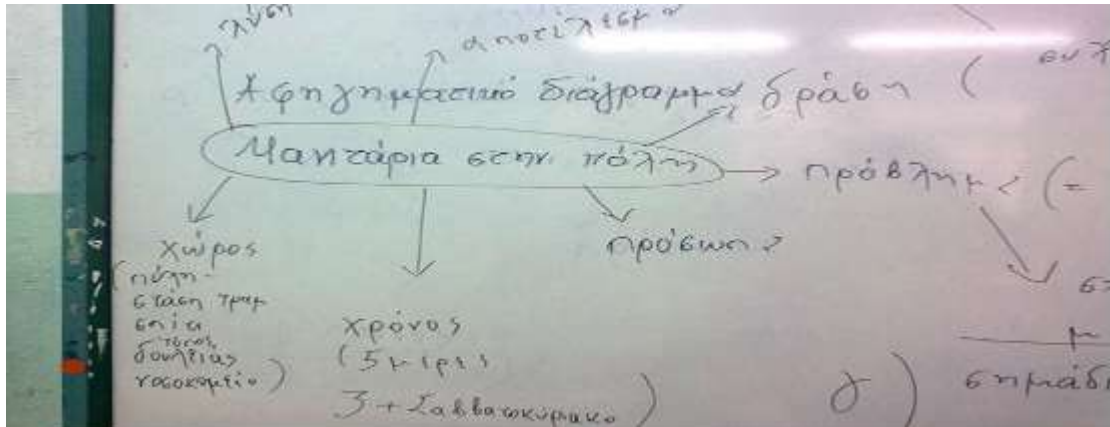 λύση
αποτέλεσμα
Αφηγηματικό διάγραμμα δράση (
Μανιτάρια στην πόλη
πρόβλημα (=
χώρος
(πόλη -
στάση τραμ
σπίτι
τόπος
δουλειάς
νοσοκομείο)
πρόσωπα
χρόνος
(5 μέρες
3 + Σαββατοκύριακο)
γ)
σημάδι